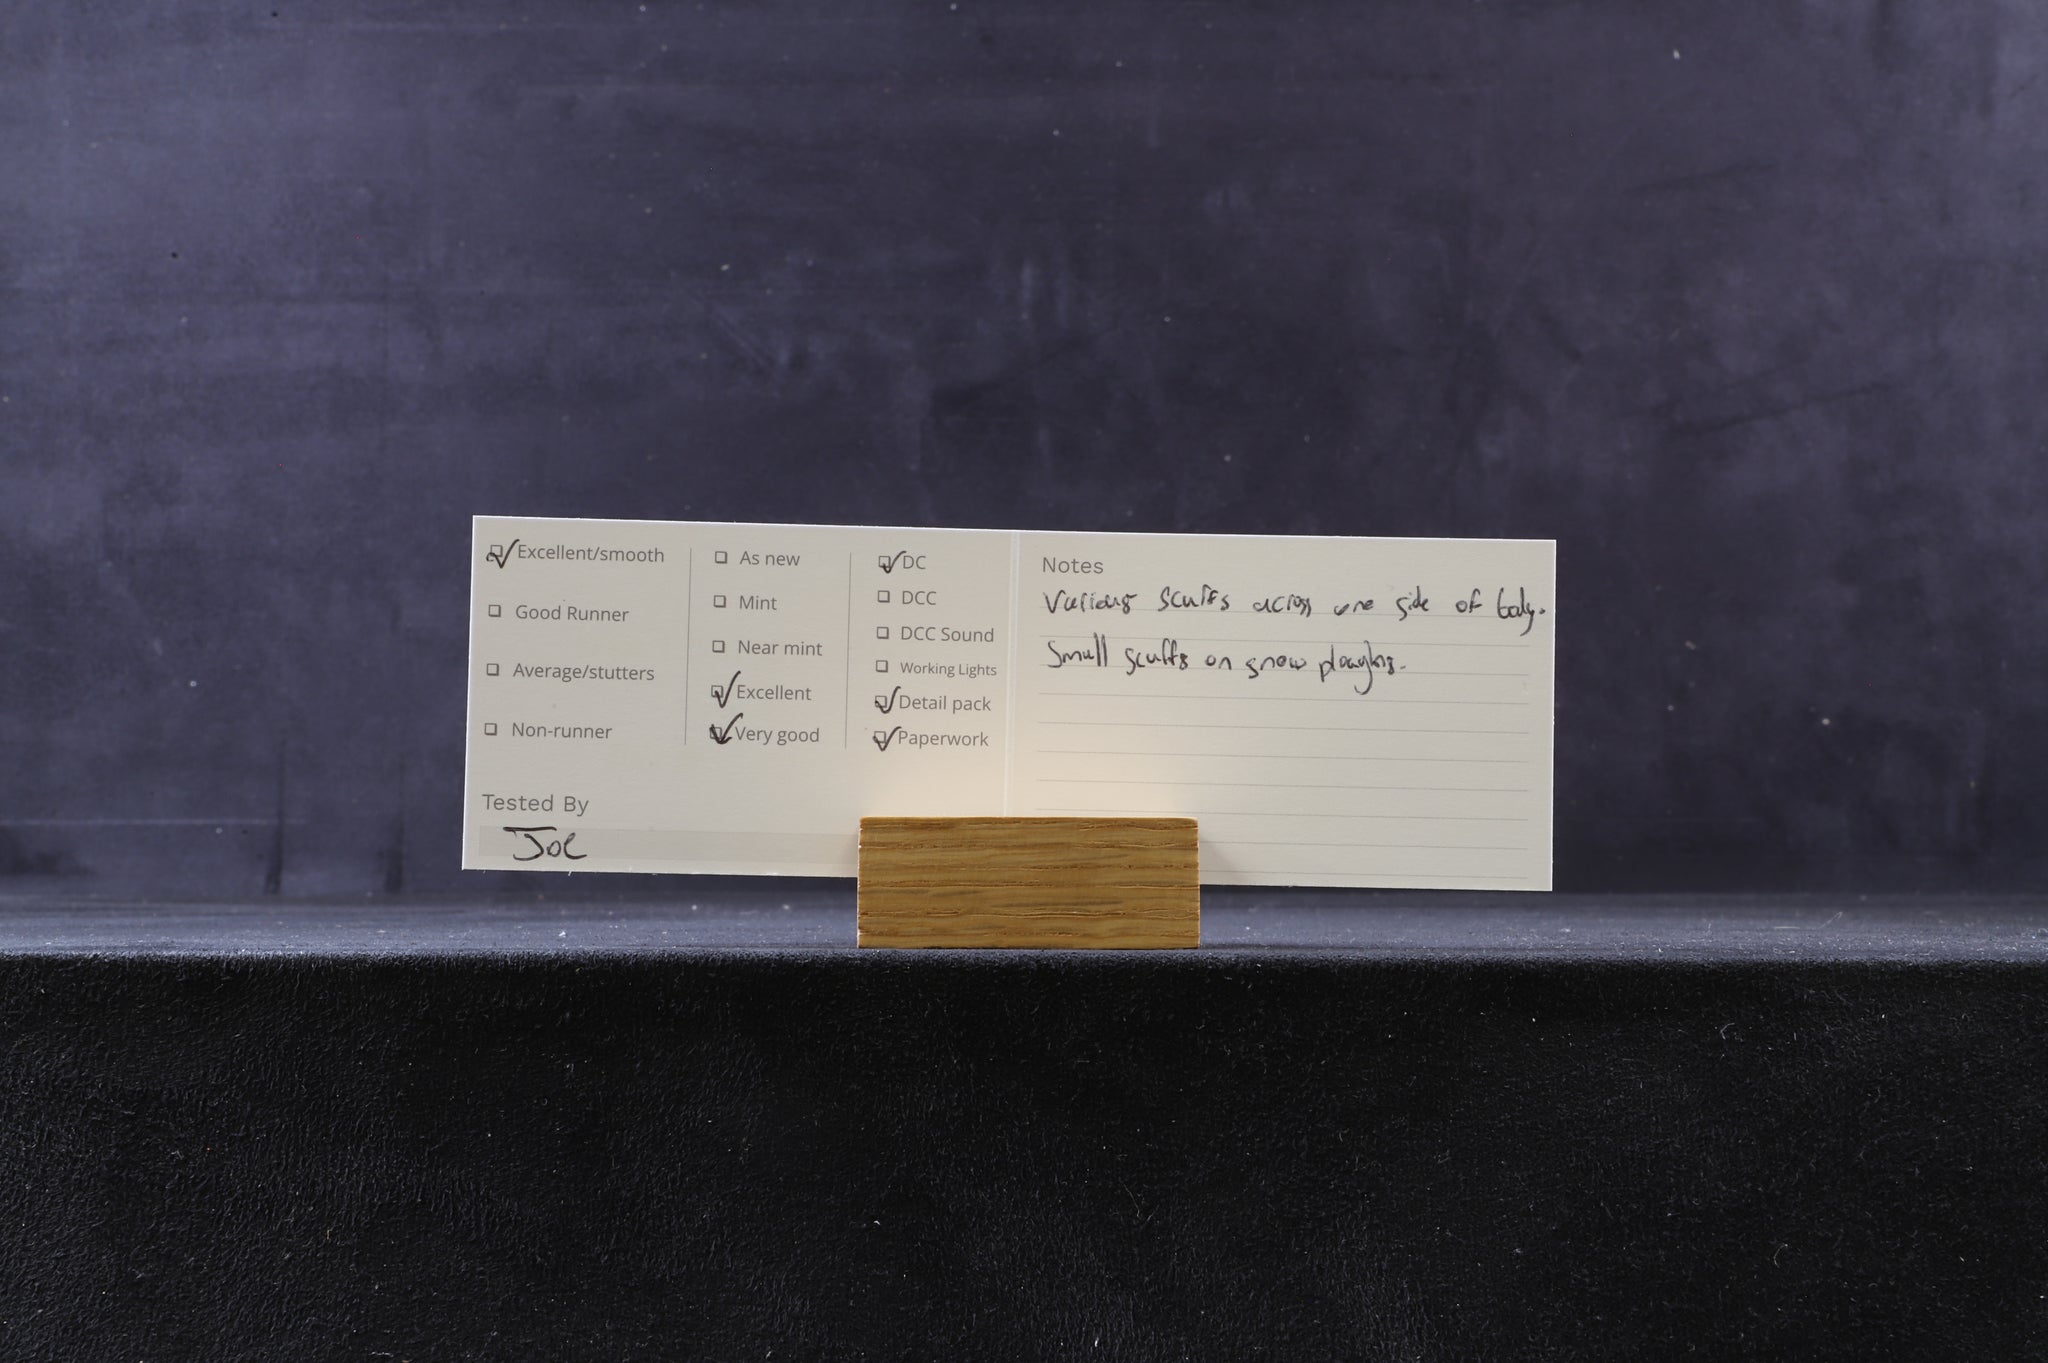 Excellent/smooth
Good Runner
Average/stutters
Non-runner
As new
Mint
Near mint
Excellent
Very good
DC
DCC
DCC Sound
Working Lights
Detail pack
Paperwork
Tested By
Joe
Notes
Various scuffs across one side of body.
Small scuffs on snow ploughs.